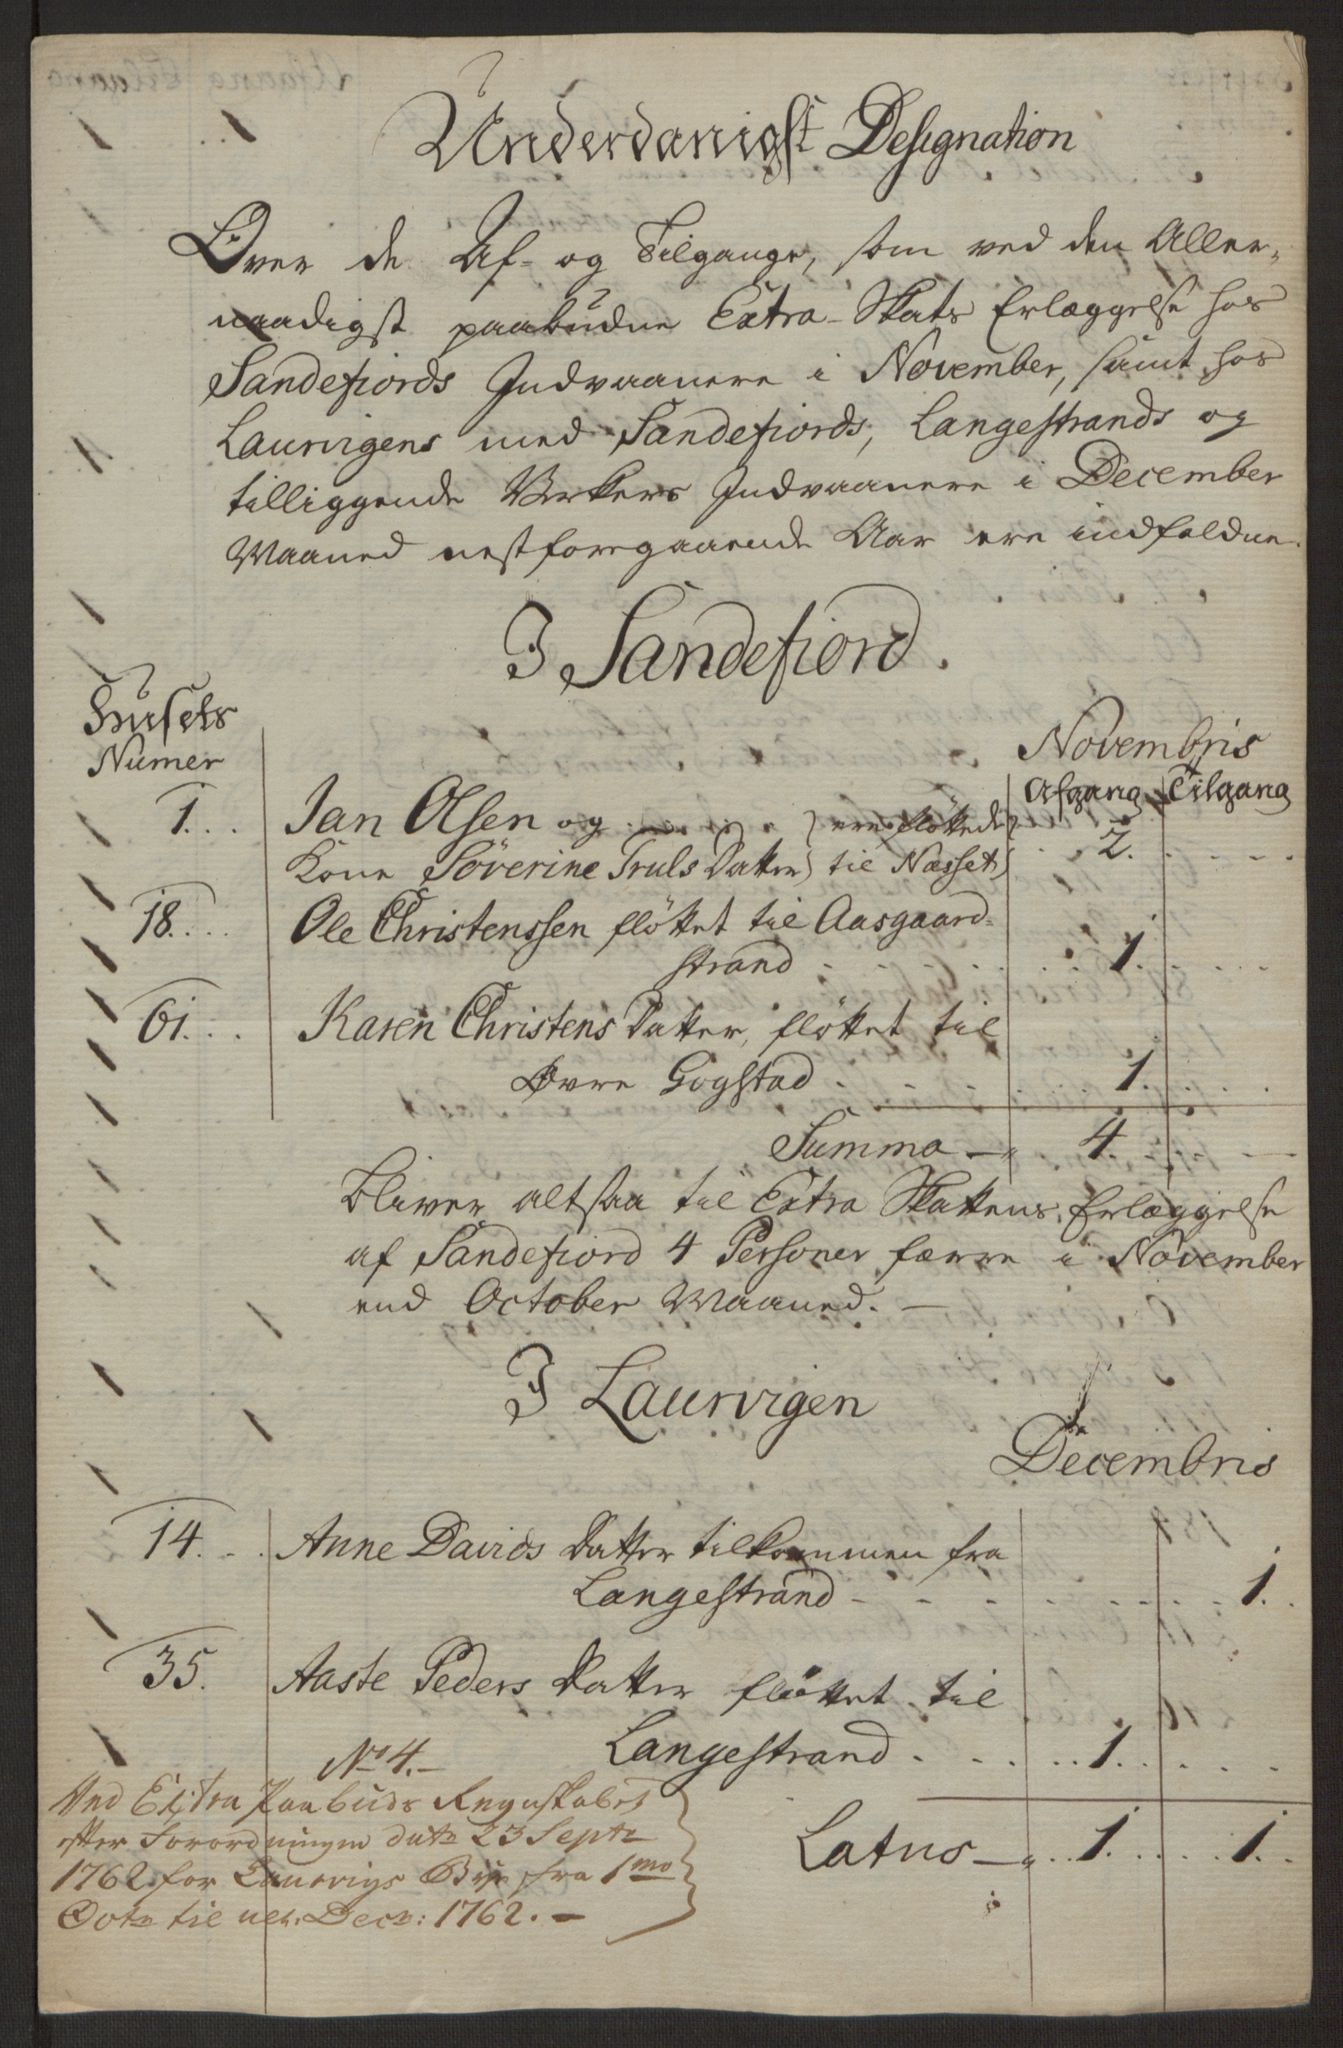 Underdanigst Designation
Over de Af- og Tilgange, som ved den Aller-
naadigst paabudne Extra-Skats Erlæggelse hos
Sandefiords Indvaanere i November, samt hos
Laurvigens med Sandefiords, Langestrands og
tilliggende Verkers Indvaanere i December
Maaned nestforegaaende Aar ere indfaldne.
I Sandefiord.
Husets
Numer
Novembris
Afgang Tilgang
1. Jan Olsen og ere fløttede 2.
Kone Söverine Truls Datter til Næsset
18. Ole Christenssen fløttet til Aasgaard-
strand 1.
61. Karen Christens Datter, fløttet til
Øvre Gogstad 1.
Summa 4.
Bliver altsaa til Extra Skattens Erlæggelse
af Sandefiord 4 Personer færre i November
end October Maaned.
I Laurvigen
Decembris
14. Anne Davids Datter tilkommen fra
Langestrand 1.
35. Aaste Peders Datter fløttet til
Langestrand 1.
No 4.
Latus 1. 1.
Ved Extra Paabuds Regnskabet
efter Forordningen dato 23 Septr
1762 for Laurvigs Bye fra 1mo
Octr til ult. Decr: 1762.